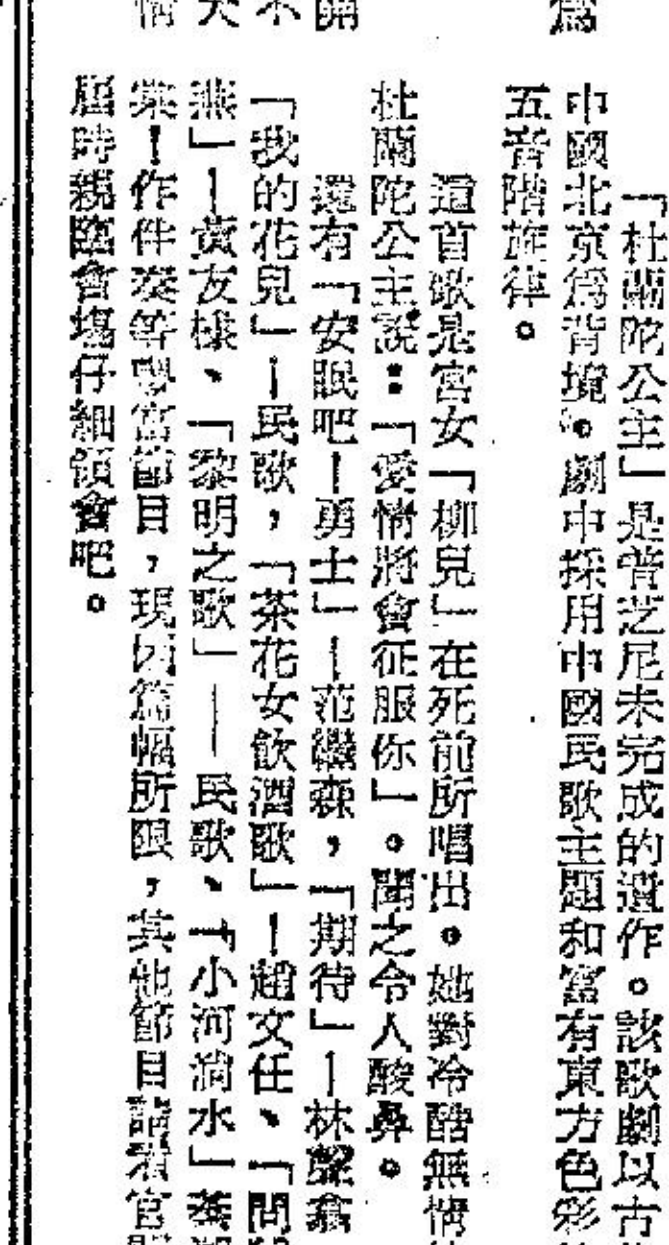 為
「杜蘭陀公主」是普芝尼未完成的遺作。該歌劇以古
中國北京為背境。劇中採用中國民歌主題和富有東方色彩
五音階旋律。
這首歌是宮女「柳兒」在死前所唱出。她對冷酷無情
杜蘭陀公主說：「愛情將會征服你」。聞之令人酸鼻。
還有「安眠吧—勇士」—范繼森，「期待」—林聲翕
「我的花兒」—民歌，「茶花女飲酒歌」—趙文任、「問
燕」—黃友棣、「黎明之歌」——民歌、「小河淌水」
樂！作伴奏等學富節目，現因篇幅所限，其他節目請
屆時親臨會場仔細領會吧。
開
不
天
情